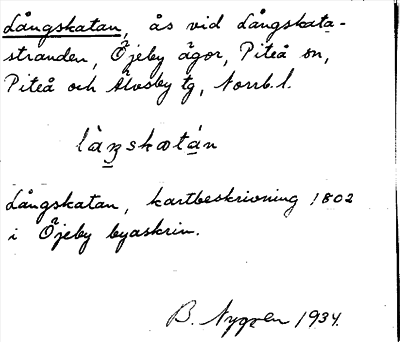 Långskatan, ås vid Långskata-
stranden, Öjeby ägor, Piteå sn,
Piteå och Älvsby tg, Norrb. l.
Långskatan, kartbeskrivning 1802
i Öjeby byaskrin.
B. Nygren 1934.